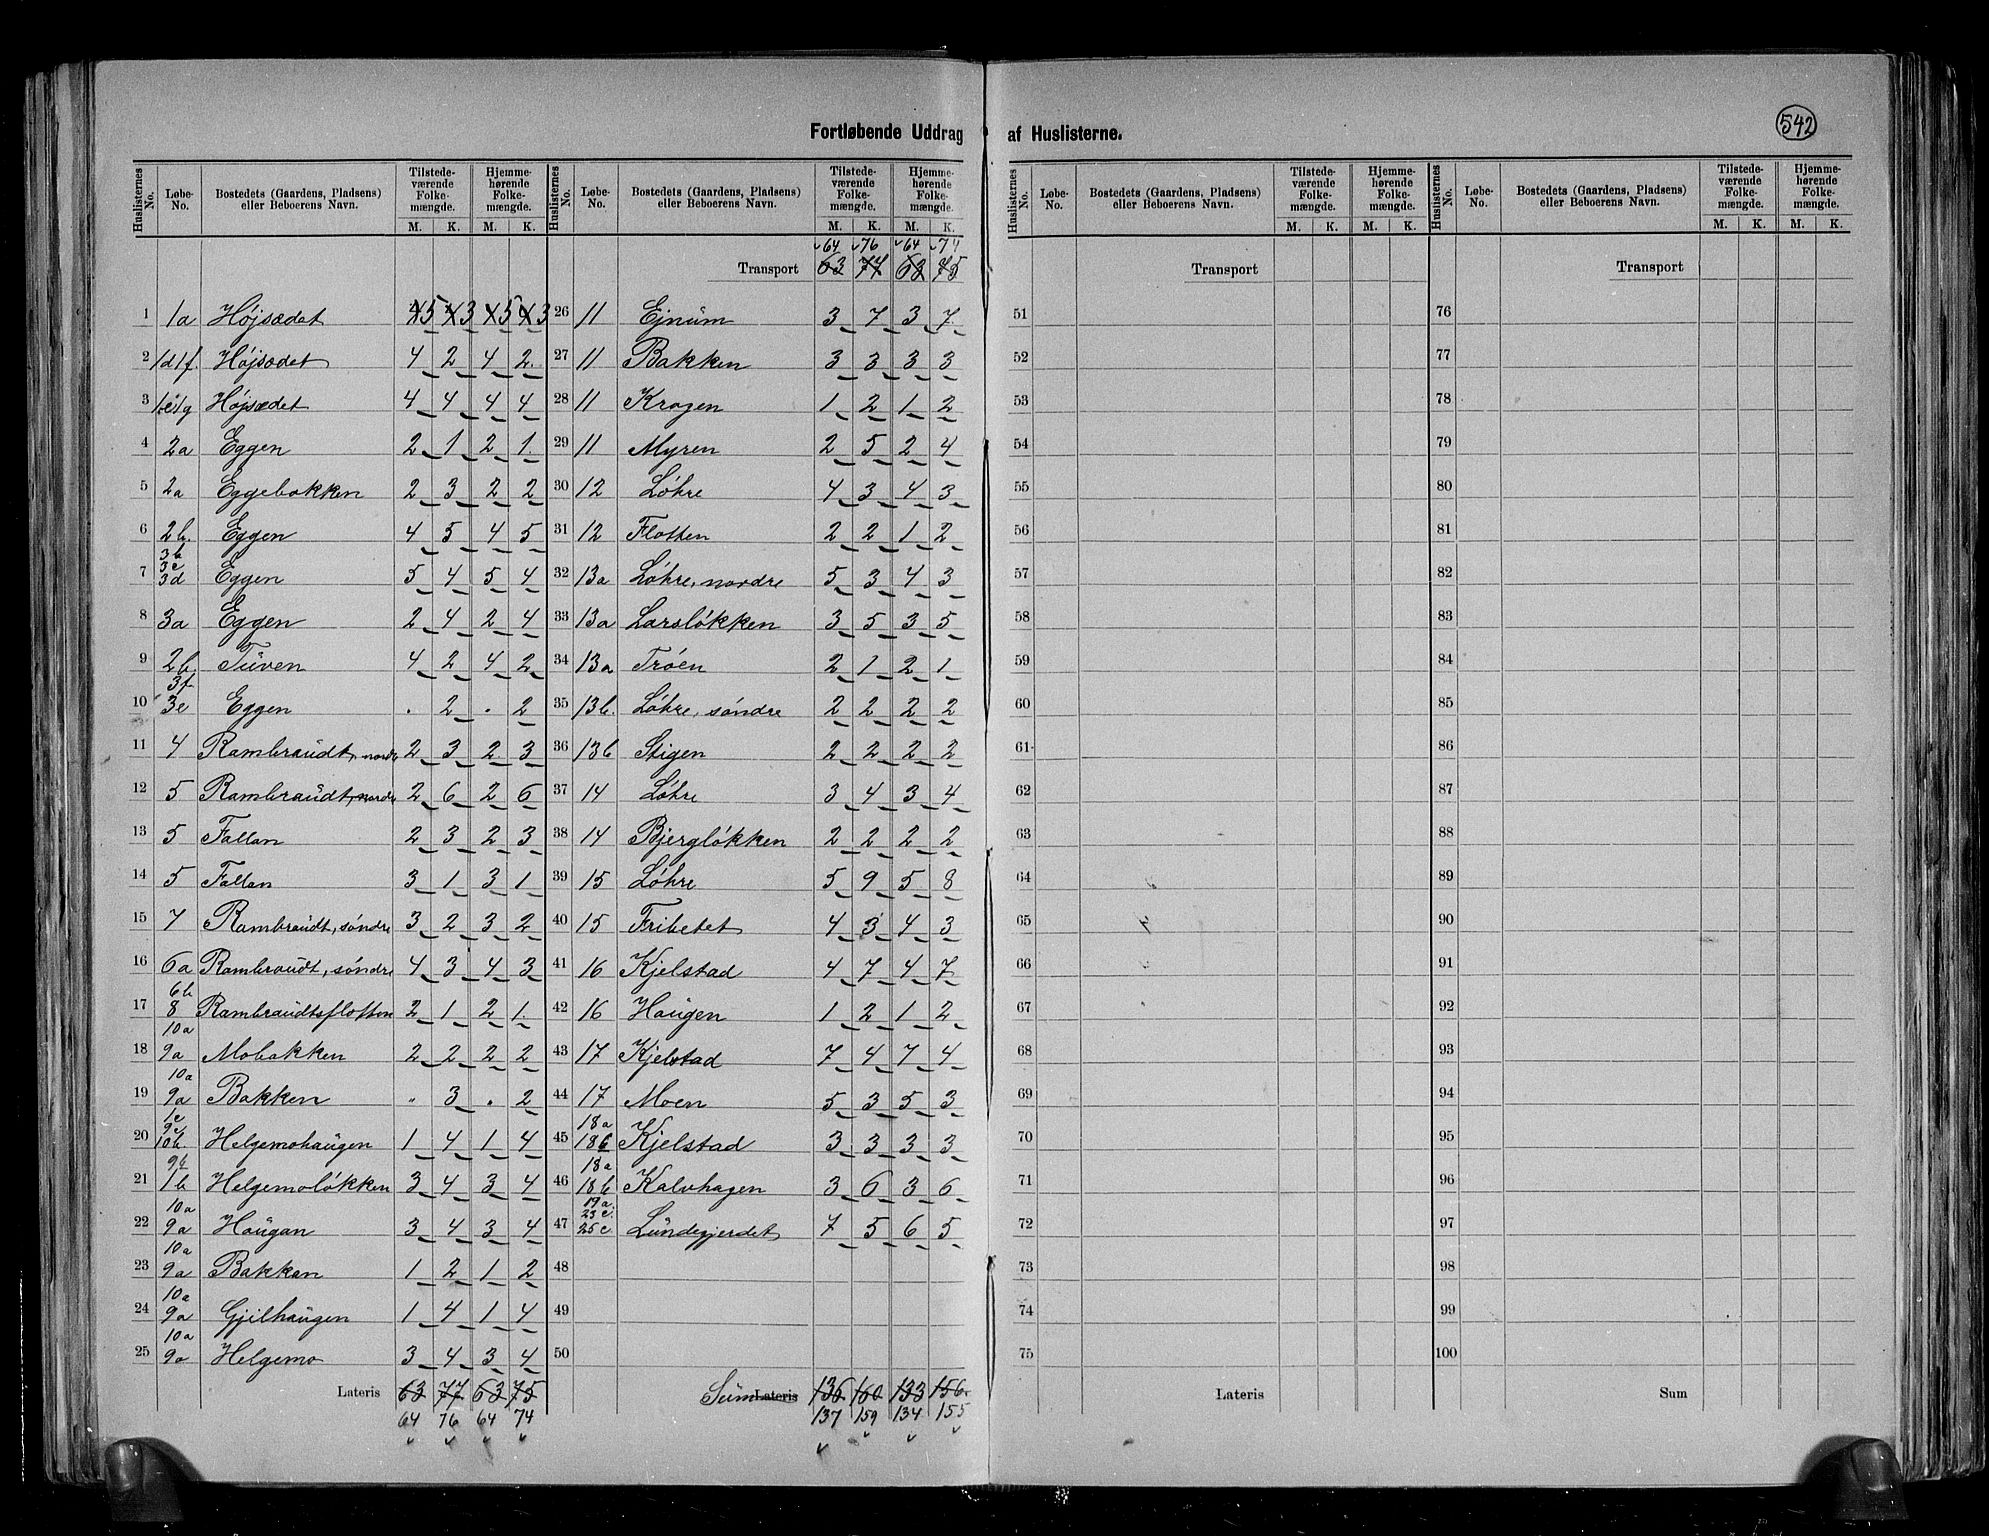 Fortløbende Uddrag af Huslisterne.
542
Huslisternes No. Løbe-No. Bostedets (Gaardens, Pladsens) eller Beboerens Navn. Tilstedeværende Folkemængde. M. K. Hjemmehørende Folkemængde. M. K.
1 1a Højsædet 4 5 4 3 4 5 4 3
2 1d 1f. Højsædet 4 2 4 2.
3 1e 1g Højsædet 4 4 4 4
4 2a Eggen 2 1 2 1.
5 2a Eggebakken 2 3 2 2
6 2b. Eggen 4 5 4 5
7 3b 3c 3d Eggen 5 4 5 4
8 3a Eggen 2 4 2 4
9 2b. Tüven 4 2 4 2
10 3f 3e Eggen . 2 . 2
11 4 Rambraüdt, nordre 2 3 2 3
12 5 Rambraüdt, nordre 2 6 2 6
13 5 Fallan 2 3 2 3
14 5 Fallan 3 1 3 1
15 7 Rambraüdt, søndre 3 2 3 2
16 6a Rambraüdt, søndre 4 3 4 3
17 6b 8 Rambraüdtsflotten 2 1 2 1.
18 10a 9a Mobakken 2 2 2 2
19 10a 9a Bakken . 3 . 2
20 1c 9c 10b. Helgemohaügen 1 4 1 4
21 9b 1b Helgemoløkken 3 4 3 4
22 10a 9a Haügan 3 4 3 4
23 10a 9a Bakkan 1 2 1 2
24 10a 9a Gjilhaügen 1 4 1 4
25 10a 9a Helgemo 3 4 3 4
Lateris 63 77 63 75
64 76 64 74
Huslisternes No. Løbe-No. Bostedets (Gaardens, Pladsens) eller Beboerens Navn. Tilstedeværende Folkemængde. M. K. Hjemmehørende Folkemængde. M. K.
64 76 64 74
Transport 63 77 63 75
26 11 Ejnüm 3 7 3 7.
27 11 Bakken 3 3 3 3
28 11 Krogen 1 2 1 2
29 11 Myren 2 5 2 4
30 12 Løhre 4 3 4 3
31 12 Flotten 2 2 1 2
32 13a Løhre, nordre 5 3 4 3
33 13a Larsløkken 3 5 3 5
34 13a Trøen 2 1 2 1
35 13b. Løhre, søndre 2 2 2 2
36 13b Stigen 2 2 2 2
37 14 Løhre 3 4 3 4
38 14 Bjergløkken 2 2 2 2
39 15 Løhre 5 9 5 8
40 15 Fribetet 4 3 4 3
41 16 Kjelstad 4 7 4 7
42 16 Haügen 1 2 1 2
43 17 Kjelstad 7 4 7 4
44 17 Moen 5 3 5 3
45 18a 18b Kjelstad 3 3 3 3
46 18a 18b Kalvhagen 3 6 3 6
47 19a 23c. 25c Lündegjerdet 7 5 6 5
48
49
50
Süm Lateris 136 160 133 156.
137 159 134 155
Huslisternes No. Løbe-No. Bostedets (Gaardens, Pladsens) eller Beboerens Navn. Tilstedeværende Folkemængde. M. K. Hjemmehørende Folkemængde. M. K.
Transport
51
52
53
54
55
56
57
58
59
60
61
62
63
64
65
66
67
68
69
70
71
72
73
74
75
Lateris
Huslisternes No. Løbe-No. Bostedets (Gaardens, Pladsens) eller Beboerens Navn. Tilstedeværende Folkemængde. M. K. Hjemmehørende Folkemængde. M. K.
Transport
76
77
78
79
80
81
82
83
84
85
86
87
88
89
90
91
92
93
94
95
96
97
98
99
100
Sum